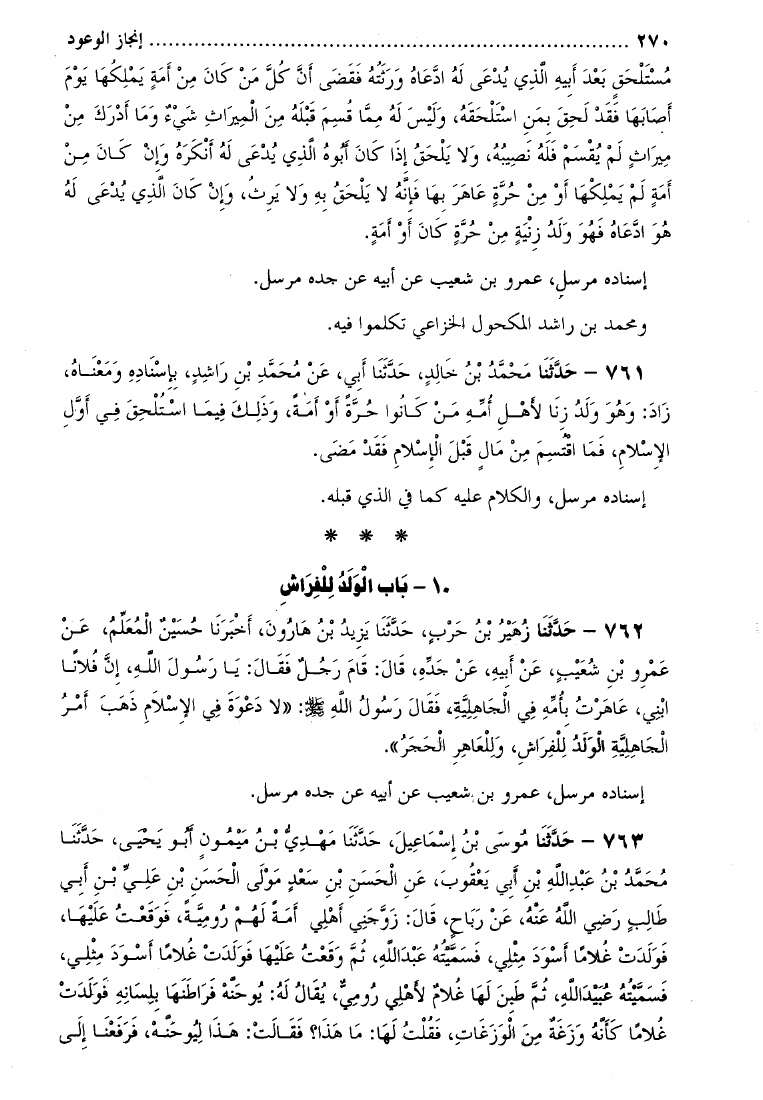 ٢٧٠ ........................................................................... إنجاز الوعود
مُسْتَلْحَقٍ بَعْدَ أَبِيهِ الَّذِي يُدْعَى لَهُ ادَّعَاهُ وَرَثَتُهُ فَقَضَى أَنَّ كُلَّ مَنْ كَانَ مِنْ أَمَةٍ يَمْلِكُهَا يَوْمَ
أَصَابَهَا فَقَدْ لَحِقَ بِمَنِ اسْتَلْحَقَهُ، وَلَيْسَ لَهُ مِمَّا قُسِمَ قَبْلَهُ مِنَ الْمِيرَاثِ شَيْءٌ وَمَا أَدْرَكَ مِنْ
مِيرَاثٍ لَمْ يُقْسَمْ فَلَهُ نَصِيبُهُ، وَلا يَلْحَقُ إِذَا كَانَ أَبُوهُ الَّذِي يُدْعَى لَهُ أَنْكَرَهُ وَإِنْ كَـانَ مِـنْ
أَمَةٍ لَمْ يَمْلِكْهَا أَوْ مِنْ حُرَّةٍ عَاهَرَ بِهَا فَإِنَّهُ لا يَلْحَقُ بِهِ وَلا يَرِثُ، وَإِنْ كَانَ الَّذِي يُدْعَى لَهُ
هُوَ ادَّعَاهُ فَهُوَ وَلَدُ زِنْيَةٍ مِنْ حُرَّةٍ كَانَ أَوْ أَمَةٍ.
إسناده مرسل، عمرو بن شعيب عن أبيه عن جده مرسل.
ومحمد بن راشد المكحول الخزاعي تكلموا فيه.
٧٦١ - حَدَّثَنَا مَحْمُودُ بْنُ خَالِدٍ، حَدَّثَنَا أَبِي، عَنْ مُحَمَّدِ بْنِ رَاشِدٍ، بِإِسْنَادِهِ وَمَعْنَـاهُ،
زَادَ: وَهُوَ وَلَدُ زِنَا لأَهْـلِ أُمِّـهِ مَـنْ كَـانُوا حُـرَّةً أَوْ أَمَـةً، وَذَلِـكَ فِيمَـا اسْـتُلْحِقَ فِـي أَوَّلِ
الإِسْلامِ، فَمَا اقْتُسِمَ مِنْ مَالٍ قَبْلَ الْإِسْلامِ فَقَدْ مَضَى.
إسناده مرسل، والكلام عليه كما في الذي قبله.
* * *
١٠- بَاب الْوَلَدُ لِلْفِرَاشِ
٧٦٢ - حَدَّثَنَا زُهَيْرُ بْنُ حَرْبٍ، حَدَّثَنَا يَزِيدُ بْنُ هَارُونَ، أَخْبَرَنَا حُسَيْنٌ الْمُعَلِّمُ، عَـنْ
عَمْرِو بْنِ شُعَيْبٍ، عَنْ أَبِيهِ، عَنْ جَدِّهِ، قَالَ: قَامَ رَجُـلٌ فَقَـالَ: يَـا رَسُـولَ اللَّـهِ، إِنَّ فُلانًـا
ابْنِي، عَاهَرْتُ بِأُمِّهِ فِي الْجَاهِلِيَّةِ، فَقَالَ رَسُولُ اللَّهِ ﷺ: «لا دَعْوَةَ فِي الإِسْلامِ ذَهَبَ أَمْـرُ
الْجَاهِلِيَّةِ الْوَلَدُ لِلْفِرَاشِ، وَلِلْعَاهِرِ الْحَجَرُ».
إسناده مرسل، عمرو بن شعيب عن أبيه عن جده مرسل.
٧٦٣ - حَدَّثَنَا مُوسَى بْنُ إِسْمَاعِيلَ، حَدَّثَنَا مَهْـدِيُّ بْـنُ مَيْمُـونٍ أَبُـو يَحْيَـى، حَدَّثَنَـا
مُحَمَّدُ بْنُ عَبْدِاللَّهِ بْنِ أَبِي يَعْقُوبَ، عَنِ الْحَسَنِ بْنِ سَعْدٍ مَوْلَى الْحَسَنِ بْنِ عَلِـيِّ بْـنِ أَبِـي
طَالِبٍ رَضِي اللَّهُ عَنْهُ، عَنْ رَبَاحٍ، قَالَ: زَوَّجَنِي أَهْلِي أَمَةً لَهُـمْ رُومِيَّـةً، فَوَقَعْـتُ عَلَيْهَـا،
فَوَلَدَتْ غُلامًا أَسْوَدَ مِثْلِي، فَسَمَّيْتُهُ عَبْدَاللَّهِ، ثُمَّ وَقَعْتُ عَلَيْهَا فَوَلَدَتْ غُلامًا أَسْـوَدَ مِثْلِـي،
فَسَمَّيْتُهُ عُبَيْدَاللَّهِ، ثُمَّ طَبِنَ لَهَا غُلامٌ لأَهْلِي رُومِيٌّ، يُقَالُ لَهُ: يُوحَنَّهْ فَرَاطَنَهَا بِلِسَانِهِ فَوَلَدَتْ
غُلامًا كَأَنَّهُ وَزَغَةٌ مِنَ الْوَزَغَاتِ، فَقُلْتُ لَهَا: مَا هَذَا؟ فَقَـالَتْ: هَـذَا لِيُوحَنَّـهْ، فَرَفَعْنَـا إِلَـى